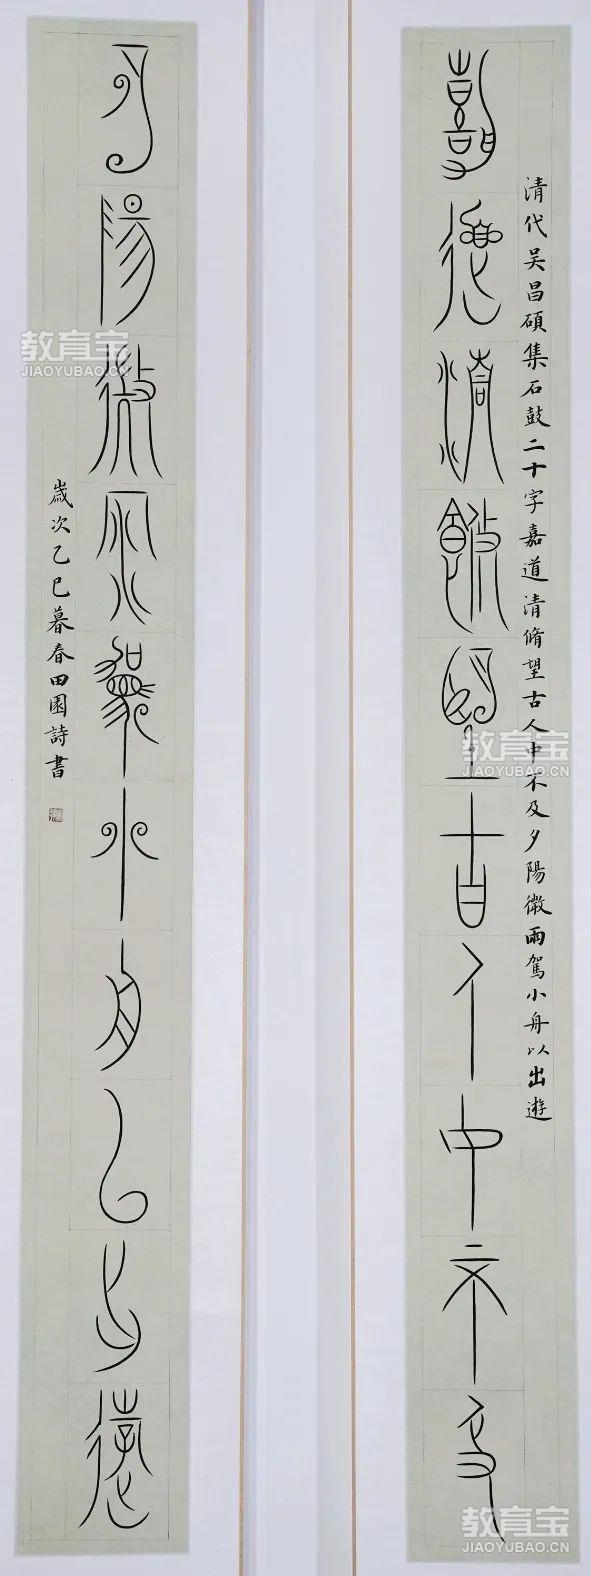 嘉道清脩望古人中不及
清代吴昌碩集石鼓二十字嘉道清脩望古人中不及夕陽微雨駕小舟以出遊
夕陽微雨駕小舟以出遊
歲次乙巳暮春田園詩書
教育宝
JIAOYUBAO.CN
教育宝
JIAOYUBAO.CN
教育宝
JIAOYUBAO.CN